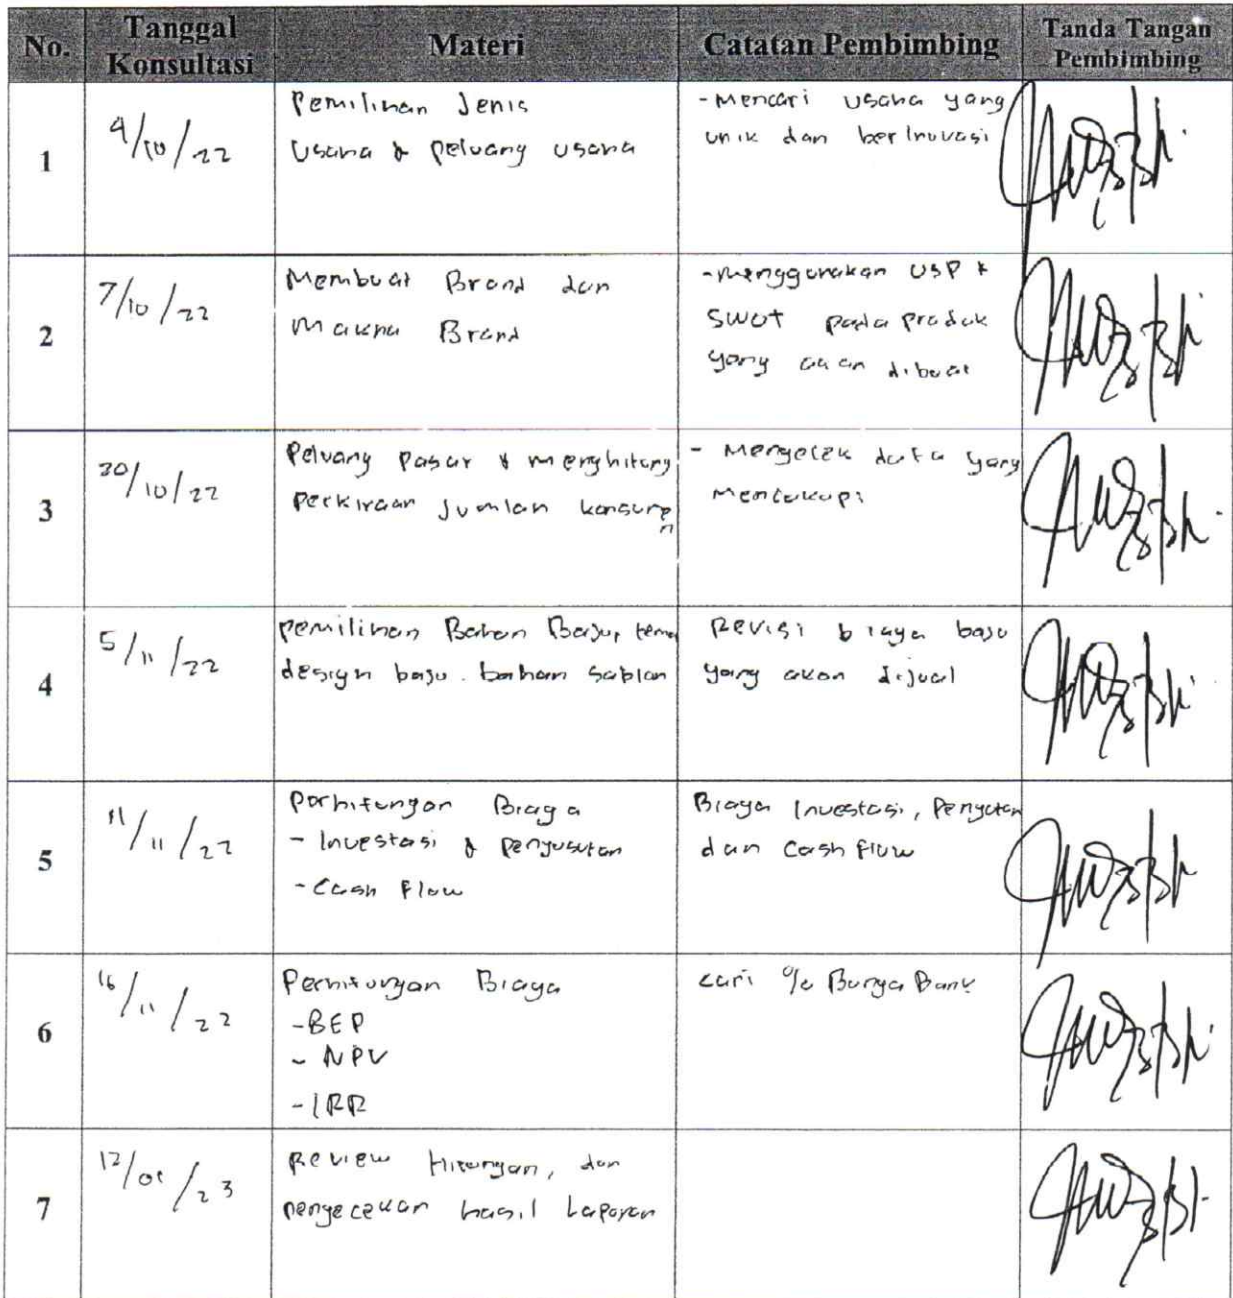 No. Tanggal Konsultasi Materi Catatan Pembimbing Tanda Tangan Pembimbing
1 4/10/22
Pemilihan Jenis
Usaha & peluang usaha
- Mencari usaha yang
unik dan berinovasi
2 7/10/22
Membuat Brand dan
Makna Brand
- Menggunakan USP &
SWOT pada produk
yang akan dibuat
3 30/10/22
Peluang Pasar & menghitung
perkiraan Jumlah konsumen
- Mengecek data yang
Mencukupi
4 5/11/22
pemilihan Bahan Baju, tema
design baju. bahan sablon
Revisi biaya baju
yang akan dijual
5 11/11/22
Perhitungan Biaya
- Investasi & penyusutan
- Cash Flow
Biaya Investasi,
dan Cash flow
6 16/11/22
Perhitungan Biaya
- BEP
- NPV
- IRR
cari % Bunga Bank
7 12/01/23
Review Hitungan, dan
pengecekan hasil Laporan